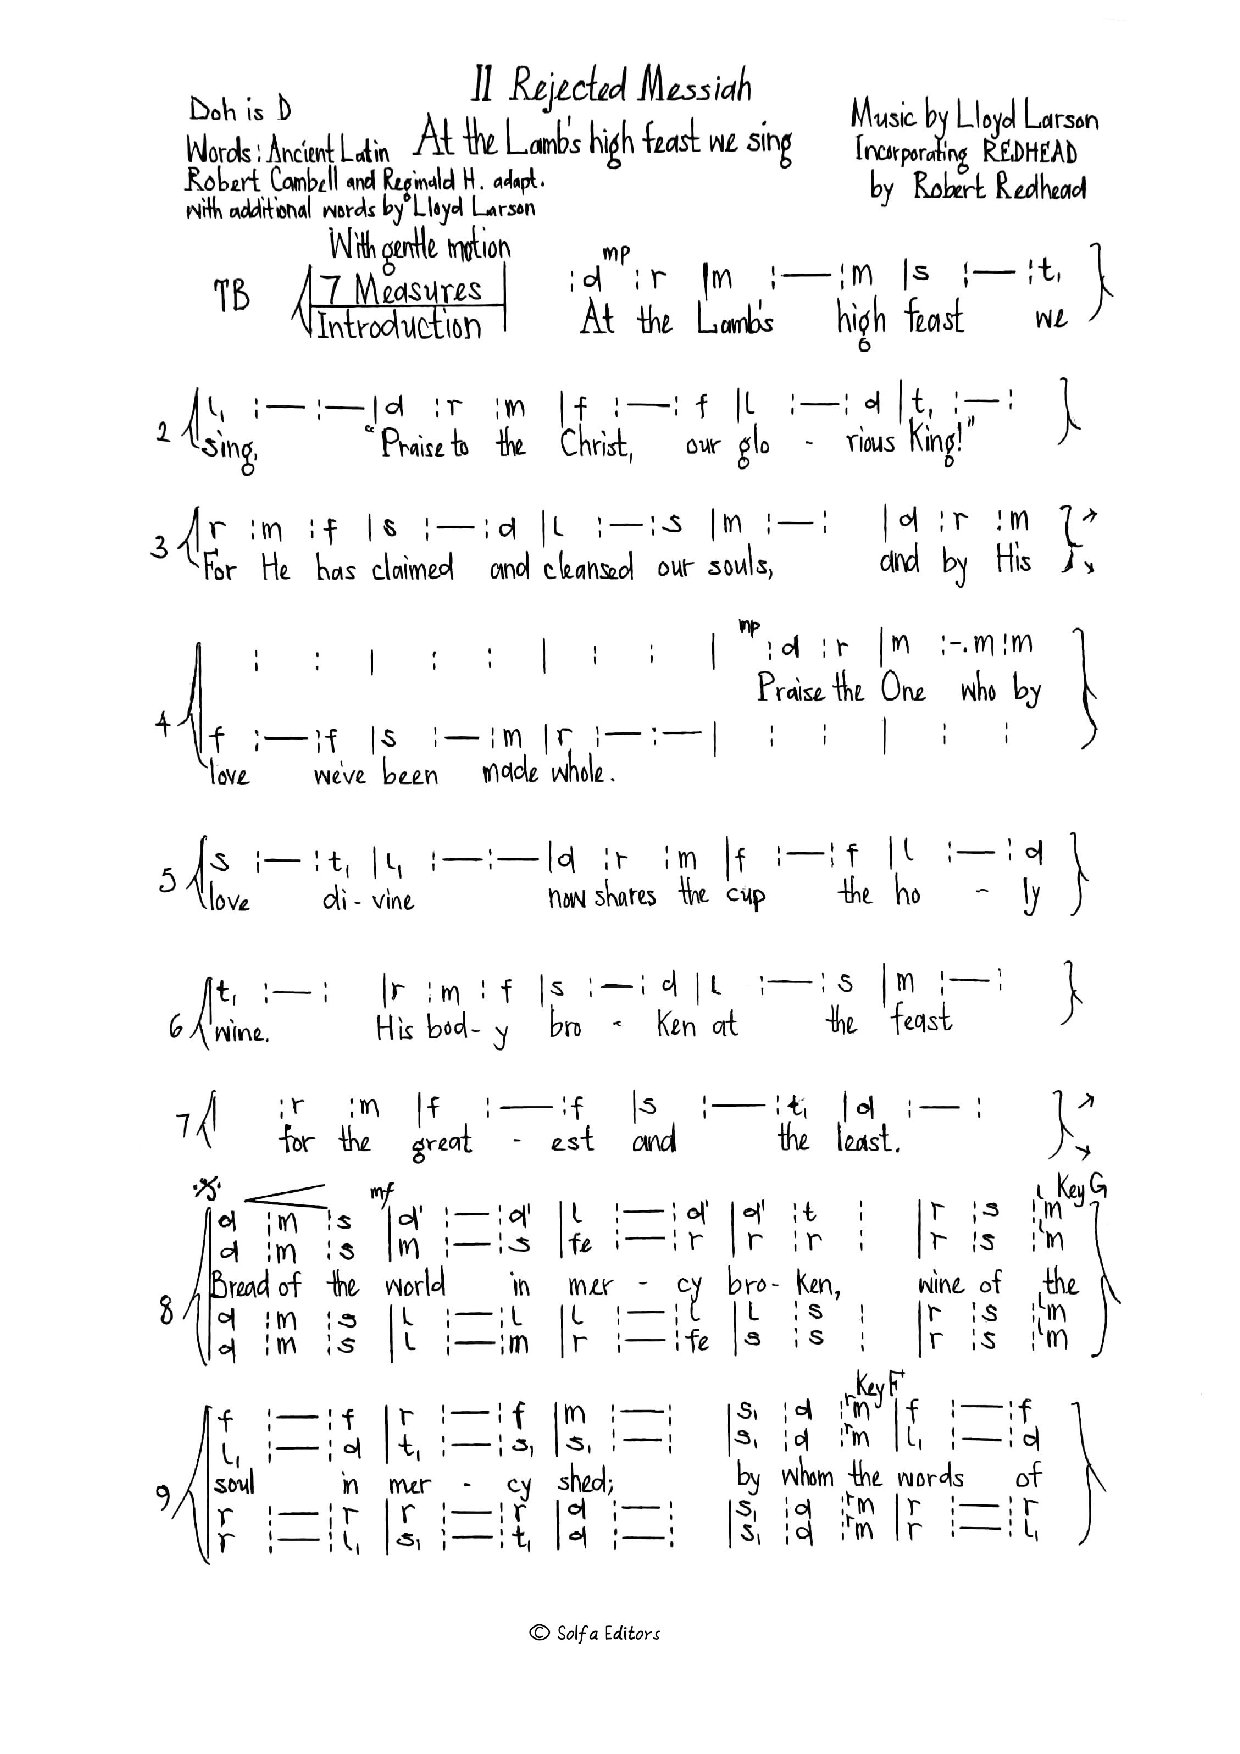 II Rejected Messiah
Doh is D
At the Lamb's high feast we sing
Music by Lloyd Larson
Words: Ancient Latin
Incorporating REDHEAD
Robert Cambell and Reginald H. adapt.
by Robert Redhead
with additional words by Lloyd Larson
With gentle motion
TB
7 Measures
Introduction
mp
:d :r |m :— :m |s :— :t,
At the Lamb's high feast we
2
l, :— :— |d :r :m |f :— : f |l :— : d |t, :— :
sing, "Praise to the Christ, our glo - rious King!"
3
r :m :f |s :— :d |l :— :s |m :— : |d :r :m
For He has claimed and cleansed our souls, and by His
4
: : | : : | : : | mp :d :r |m :-.m :m
Praise the One who by
f :— :f |s :— :m |r :— :— | : : | : :
love we've been made whole.
5
s :— :t, |l, :— :— |d :r :m |f :— :f |l :— :d
love di-vine now shares the cup the ho - ly
6
t, :— : |r :m :f |s :— :d |l :— :s |m :— :
wine. His bod-y bro - Ken at the feast
7
:r :m |f :— :f |s :— :t, |d :— :
for the great - est and the least.
mf
l Key G
d :m :s |d' :— :d' |l :— :d' |d' :t : |r :s :m
d :m :s |m :— :s |fe :— :r |r :r : |r :s :lm
8
Bread of the world in mer - cy bro-Ken, wine of the
d :m :s |l :— :l |l :— :l |l :s : |r :s :lm
d :m :s |l :— :m |r :— :fe |s :s : |r :s :lm
Key F
f :— :f |r :— :f |m :— : |s, :d :rm |f :— :f
l, :— :d |t, :— :s, |s, :— : |s, :d :rm |l, :— :d
9
soul in mer - cy shed; by whom the words of
r :— :r |r :— :r |d :— : |s, :d :rm |r :— :r
r :— :l, |s, :— :t, |d :— : |s, :d :rm |r :— :l,
© Solfa Editors